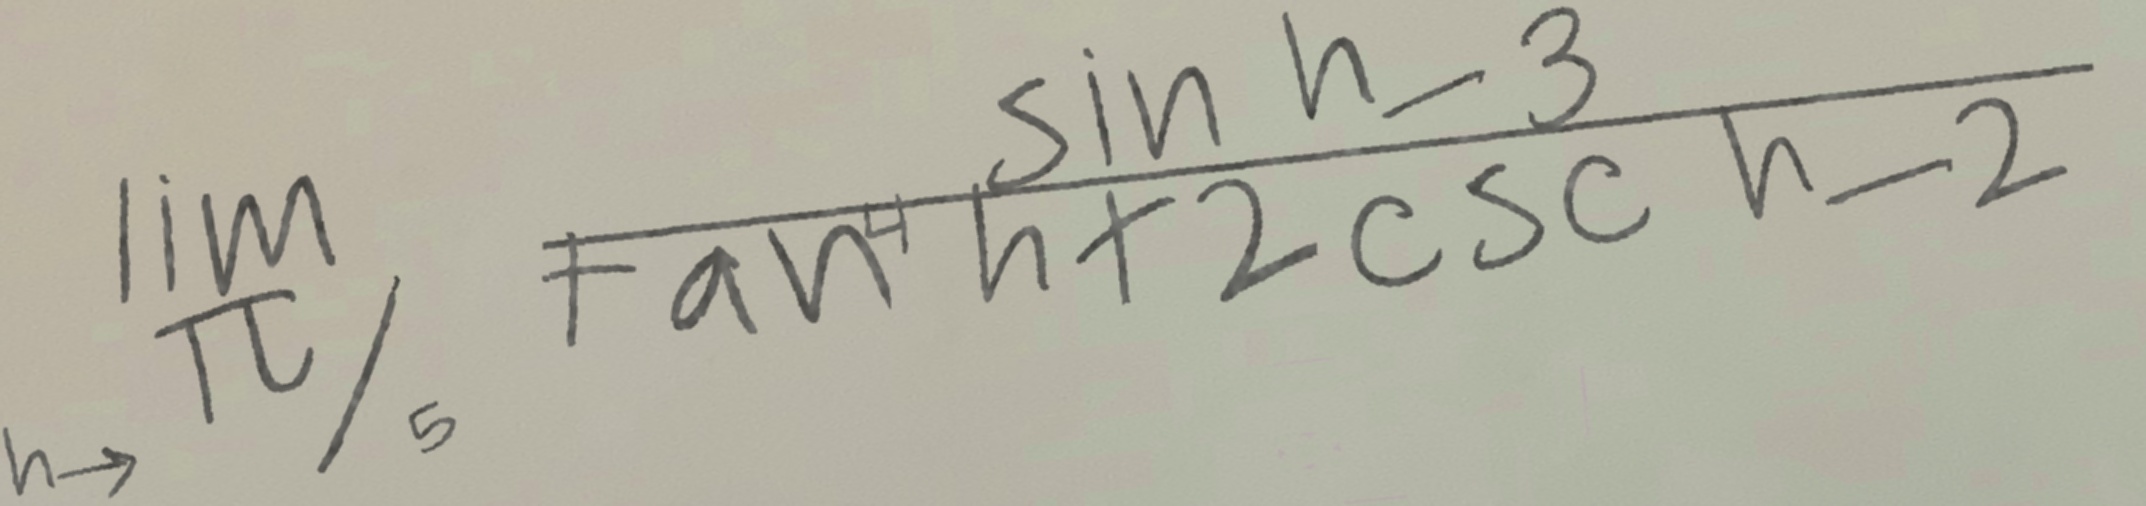 lim h→ π/5 sin h - 3 / tan⁴ h + 2 csc h - 2